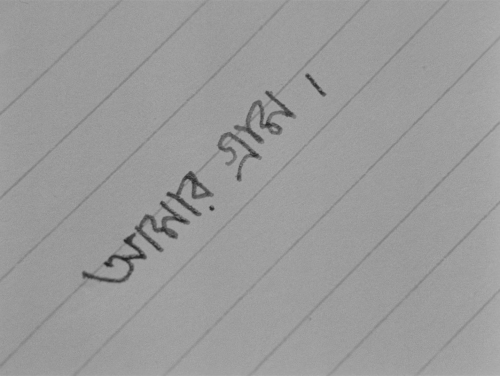 আমার গ্রাম।